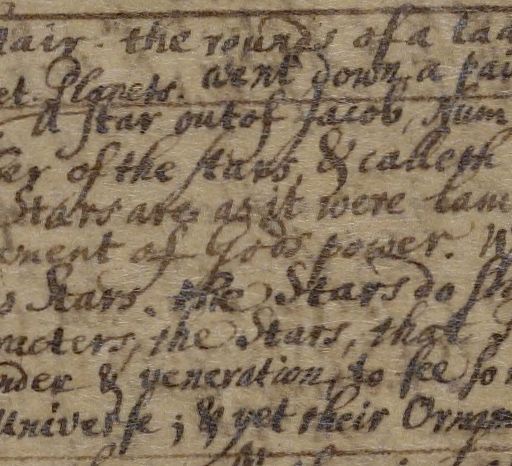 stair. the rounds of a lad
et. Planets. went down a pai
A star out of Jacob, Num
ber of the stars, & calleth
Stars are as it were lam
ment of Gods power. W
s Stars. the Stars do sh
racters, the Stars, that
nder & veneration, to see so
Universe; & yet their Orna